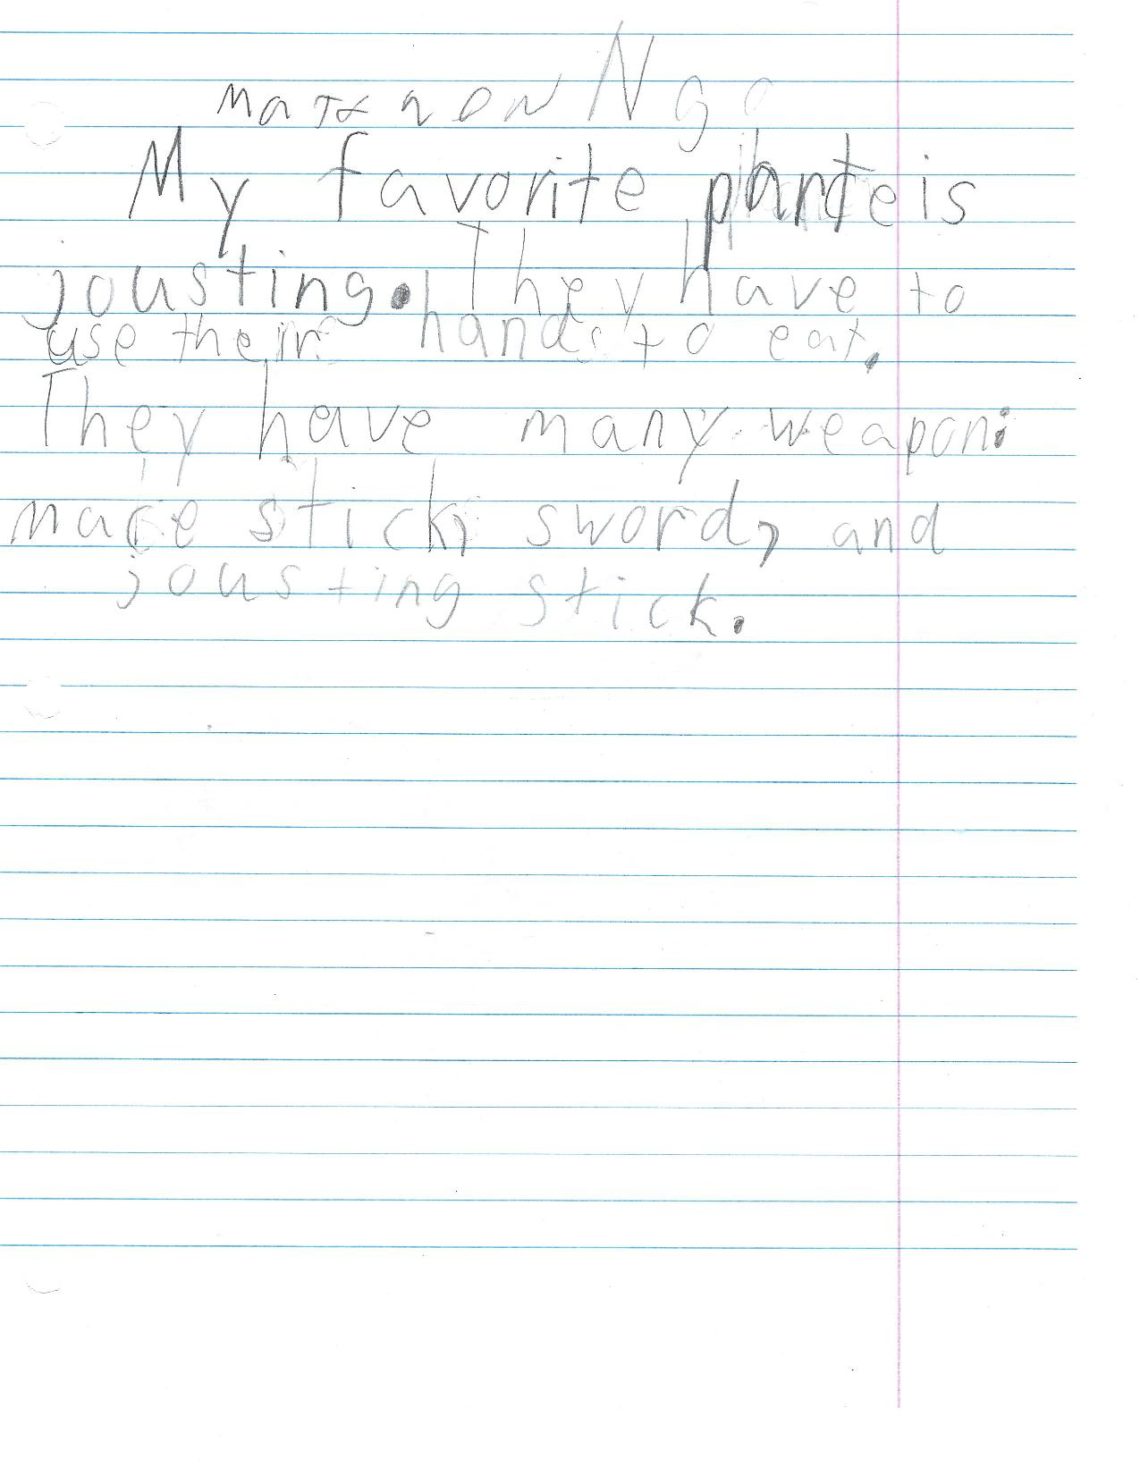 Ngo
My favorite is
jousting. They have to
use their hands to eat.
They have many weapon:
mace stick, sword, and
jousting stick.